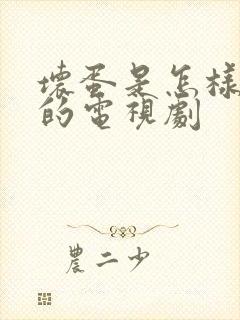 壞蛋是怎樣
的電視劇
農二少